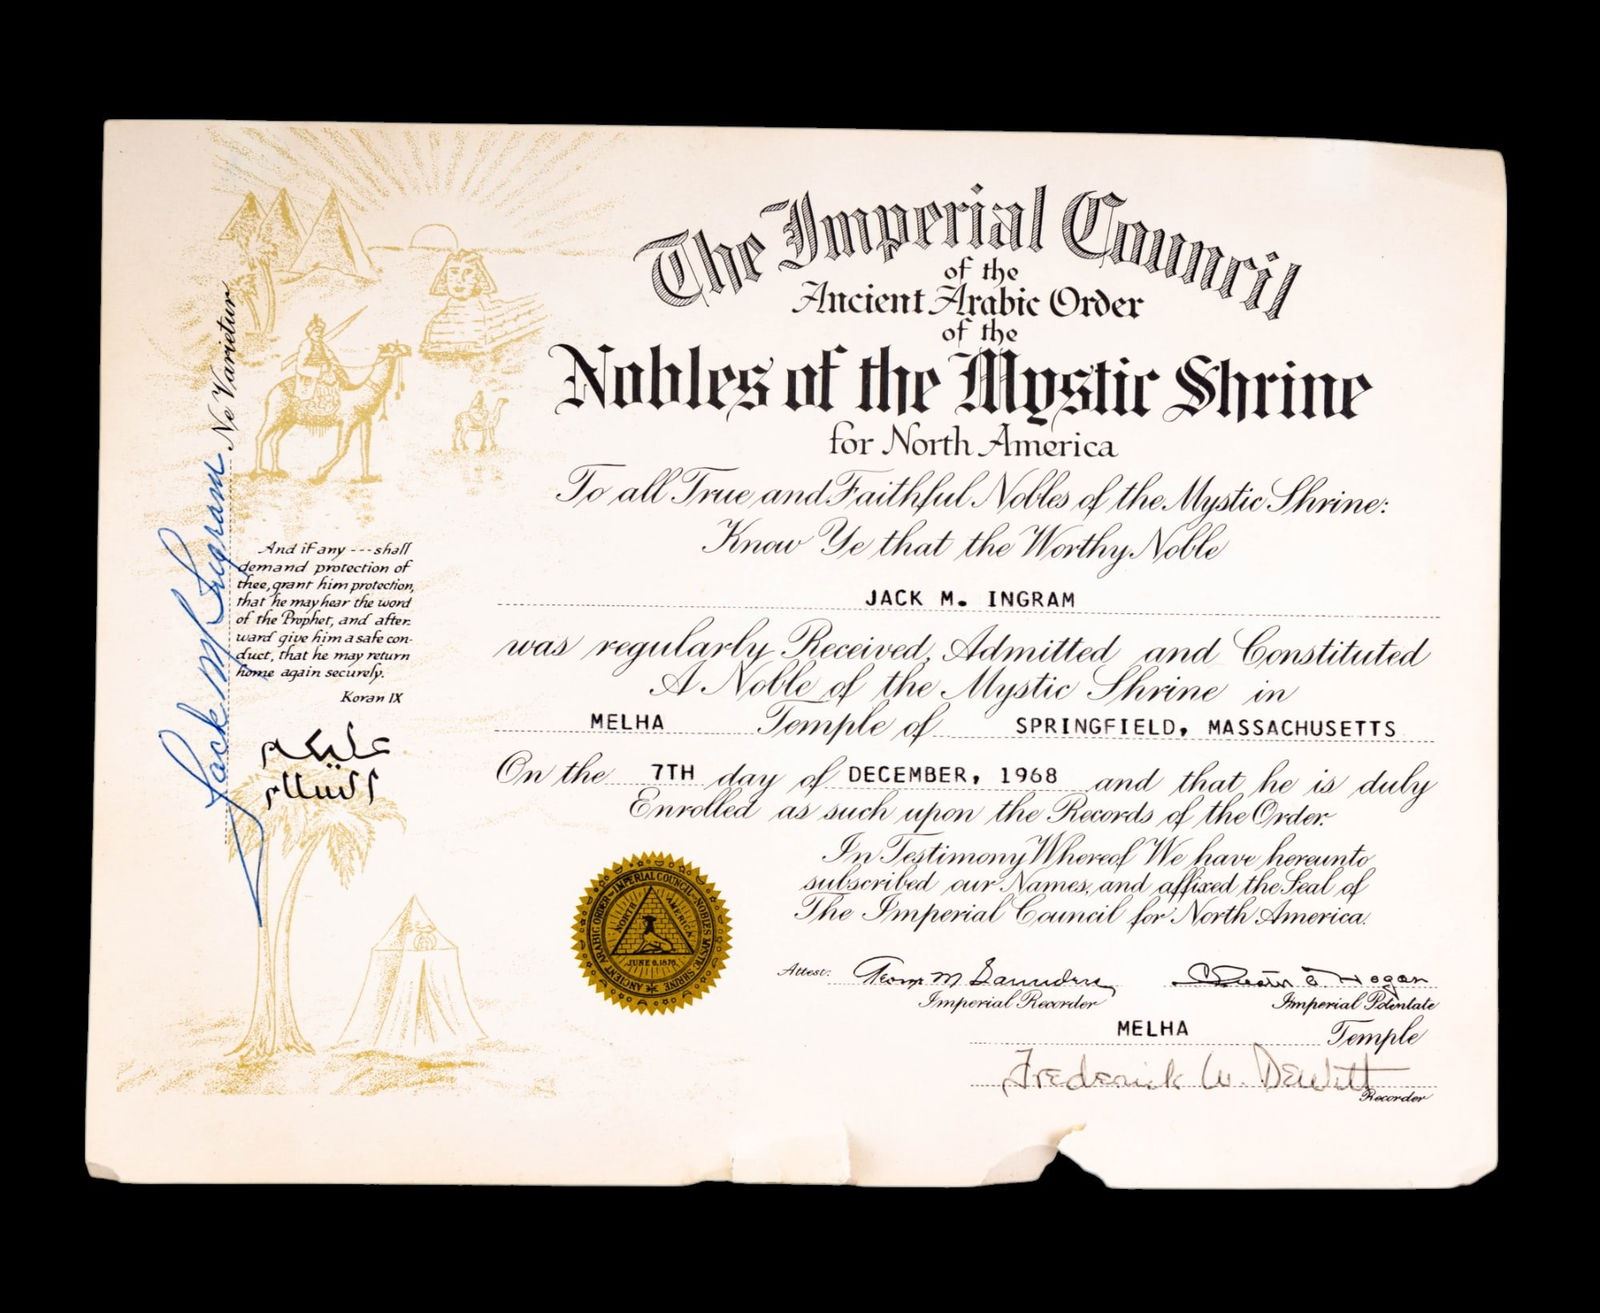 The Imperial Council
of the
Ancient Arabic Order
of the
Nobles of the Mystic Shrine
for North America
To all True and Faithful Nobles of the Mystic Shrine:
Know Ye that the Worthy Noble
JACK M. INGRAM
was regularly Received, Admitted and Constituted
A Noble of the Mystic Shrine in
MELHA Temple of SPRINGFIELD, MASSACHUSETTS
On the 7TH day of DECEMBER, 1968 and that he is duly
Enrolled as such upon the Records of the Order.
In Testimony Whereof We have hereunto
subscribed our Names, and affixed the Seal of
The Imperial Council for North America.
Attest: M Saunders
Imperial Recorder
Hogan
Imperial Potentate
MELHA Temple
Frederick W. DeWitt
Recorder
Jack M Ingram Ne Varietur
And if any --- shall
demand protection of
thee, grant him protection,
that he may hear the word
of the Prophet, and after-
ward give him a safe con-
duct, that he may return
home again securely.
Koran IX
عليكم
السلام
ANCIENT ARABIC ORDER IMPERIAL COUNCIL NOBLES MYSTIC SHRINE
NORTH AMERICA
JUNE 6, 1876